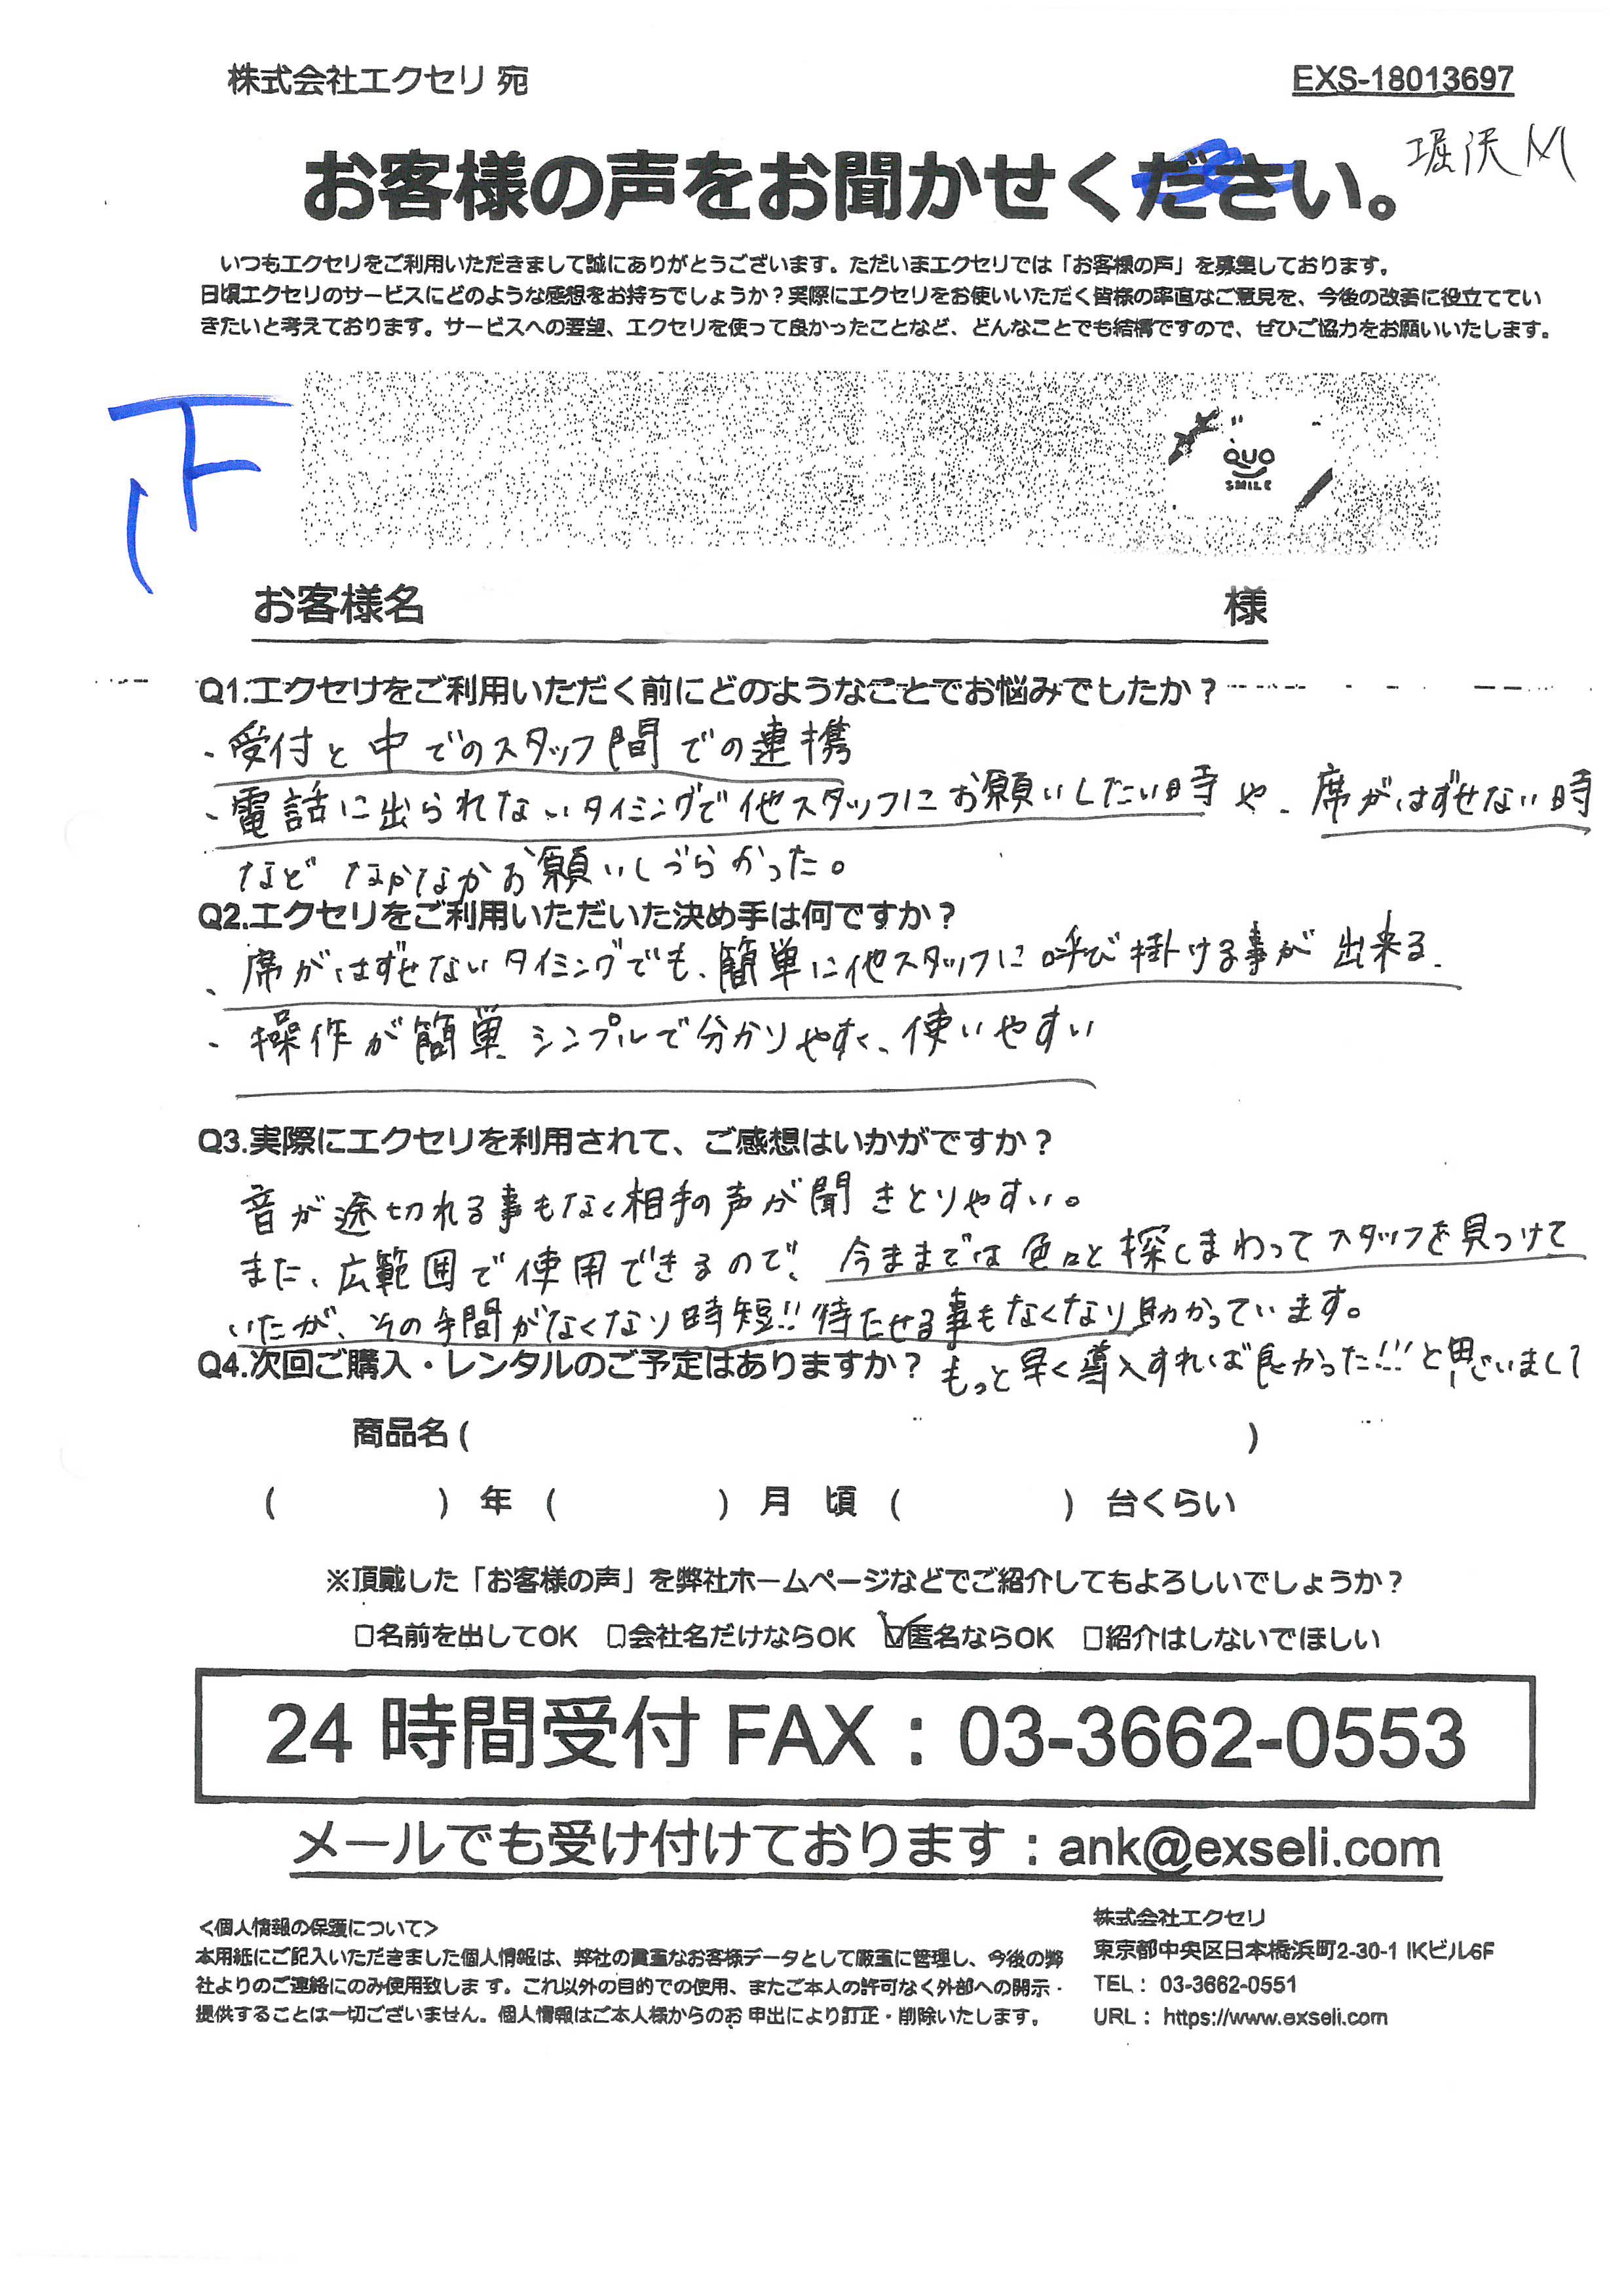 株式会社エクセリ 宛
EXS-18013697
堀沢 M
お客様の声をお聞かせください。
いつもエクセリをご利用いただきまして誠にありがとうございます。ただいまエクセリでは「お客様の声」を募集しております。
日頃エクセリのサービスにどのような感想をお持ちでしょうか？実際にエクセリをお使いいただく皆様の率直なご意見を、今後の改善に役立ててい
きたいと考えております。サービスへの要望、エクセリを使って良かったことなど、どんなことでも結構ですので、ぜひご協力をお願いいたします。
QUO
SMILE
お客様名 様
Q1.エクセリをご利用いただく前にどのようなことでお悩みでしたか？
・受付と中でのスタッフ間での連携
・電話に出られないタイミングで他スタッフにお願いしたい時や、席がはずせない時
など なかなかお願いしづらかった。
Q2.エクセリをご利用いただいた決め手は何ですか？
・席がはずせないタイミングでも、簡単に他スタッフに呼び掛ける事が出来る、
・操作が簡単、シンプルで分かりやすく、使いやすい
Q3.実際にエクセリを利用されて、ご感想はいかがですか？
音が途切れる事もなく相手の声が聞きとりやすい。
また、広範囲で使用できるので、今までは色々と探しまわってスタッフを見つけて
いたが、その手間がなくなり時短!! 待たせる事もなくなり助かっています。
もっと早く導入すれば良かった!!! と思いまして
Q4.次回ご購入・レンタルのご予定はありますか？
商品名（ ）
（ ）年（ ）月 頃（ ）台くらい
※頂戴した「お客様の声」を弊社ホームページなどでご紹介してもよろしいでしょうか？
□名前を出してOK □会社名だけならOK ☑匿名ならOK □紹介はしないでほしい
24 時間受付 FAX：03-3662-0553
メールでも受け付けております：ank@exseli.com
<個人情報の保護について>
本用紙にご記入いただきました個人情報は、弊社の貴重なお客様データとして厳重に管理し、今後の弊
社よりのご連絡にのみ使用致します。これ以外の目的での使用、またご本人の許可なく外部への開示・
提供することは一切ございません。個人情報はご本人様からのお申出により訂正・削除いたします。
株式会社エクセリ
東京都中央区日本橋浜町2-30-1 IKビル6F
TEL： 03-3662-0551
URL： https://www.exseli.com